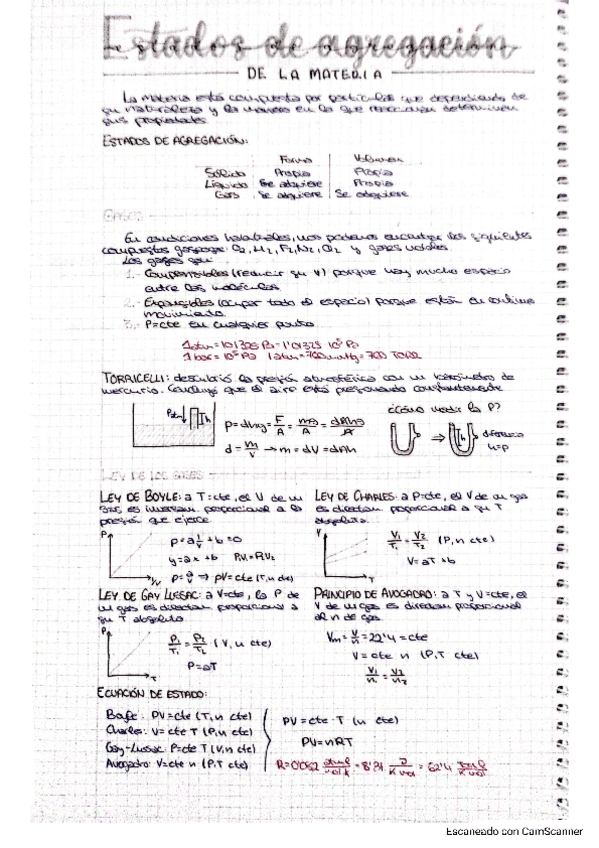 Estados de agregación
DE LA MATERIA
La materia está compuesta por partículas que dependiendo de
su naturaleza y la manera en la que reaccionan determinan
sus propiedades
ESTADOS DE AGREGACIÓN:
Forma Volumen
Sólido Propia Propio
Líquido Se adquiere Propio
Gas Se adquiere Se adquiere
GASES
En condiciones habituales, nos podemos encontrar los siguientes
compuestos gaseosos: O2, H2, F2, N2, Cl2 y gases nobles
Los gases son:
1.- Compresibles (reducir su V) porque hay mucho espacio
entre las moléculas.
2.- Expansibles (ocupar todo el espacio) porque están en continuo
movimiento
3.- P=cte en cualquier punto
1atm = 101325 Pa = 1'01325 10⁵ Pa
1 bar = 10⁵ Pa 1 atm = 760 mmHg = 760 TORR
TORRICELLI: descubrió la presión atmosférica con un barómetro de
mercurio. Concluye que el aire está presionando constantemente
Patm h P = dhg = F/A = mg/A = dAhg/A
d = m/V → m = dV = dAh
¿Cómo medir la P?
h diferencia
h=P
LEY DE LOS GASES
LEY DE BOYLE: a T=cte, el V de un
gas es inversam. proporcional a la
presión que ejerce
P 1/V
P = a 1/V + b = 0
y = ax + b P1V1 = P2V2
P = a/V ⇒ PV = cte (T, n cte)
LEY DE CHARLES: a P=cte, el V de un gas
es directam. proporcional a su T
absoluta.
V T
V1/T1 = V2/T2 (P, n cte)
V = aT + b
LEY DE GAY LUSSAC: a V=cte, la P de
un gas es directam proporcional a
su T absoluta
P T
P1/T1 = P2/T2 (V, n cte)
P = aT
PRINCIPIO DE AVOGADRO: a T y V=cte, el
V de un gas es directam proporcional
al n de gas.
Vm = V/n = 22'4 = cte
V = cte n (P, T cte)
V1/n1 = V2/n2
ECUACIÓN DE ESTADO:
Boyle: PV = cte (T, n cte)
Charles: V = cte T (P, n cte)
Gay-Lussac: P = cte T (V, n cte)
Avogadro: V = cte n (P, T cte)
PV = cte · T (n cte)
PV = nRT
R = 0'082 atm l/mol K = 8'31 J/K mol = 62'4 Torr l/K mol
Escaneado con CamScanner